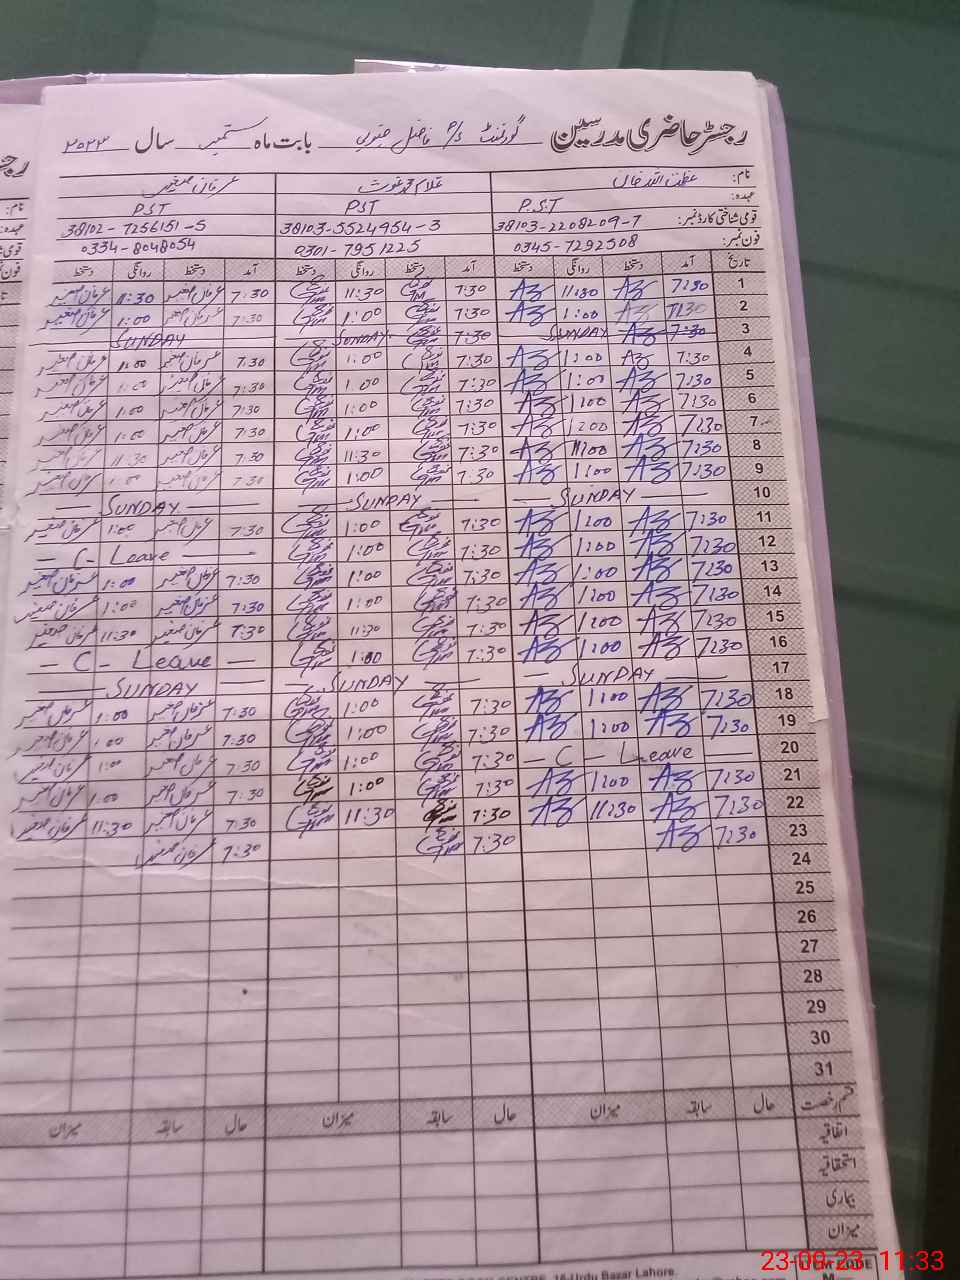 رجسٹر حاضری مدرسین گورنمنٹ بابت ماہ ستمبر سال ۲۰۲۳
نام: عظمت اللہ خان غلام محمد غوث عرفان صغیر
عہدہ: P.S.T PST PST
قومی شناختی کارڈ نمبر: 38103-2208209-7 38103-5524954-3 38102-7256151-5
فون نمبر: 0345-7292508 0301-7951225 0334-8048054
تاریخ آمد دستخط روانگی دستخط آمد دستخط روانگی دستخط آمد دستخط روانگی دستخط
1 7:30 AZ 11:30 AZ 7:30 11:30 7:30 عرفان صغیر 11:30 عرفان صغیر
2 7:30 AZ 1:00 AZ 7:30 1:00 7:30 عرفان صغیر 1:00 عرفان صغیر
3 7:30 AZ SUNDAY 7:30 SUNDAY SUNDAY
4 7:30 AZ 1:00 AZ 7:30 1:00 7:30 عرفان صغیر 1:00 عرفان صغیر
5 7:30 AZ 1:00 AZ 7:30 1:00 7:30 عرفان صغیر 1:00 عرفان صغیر
6 7:30 AZ 1:00 AZ 7:30 1:00 7:30 عرفان صغیر 1:00 عرفان صغیر
7 7:30 AZ 1:00 AZ 7:30 1:00 7:30 عرفان صغیر 1:00 عرفان صغیر
8 7:30 AZ AZ 7:30 11:30 7:30 عرفان صغیر 11:30 عرفان صغیر
9 7:30 AZ 1:00 AZ 7:30 1:00 7:30 عرفان صغیر 1:00 عرفان صغیر
10 SUNDAY SUNDAY SUNDAY
11 7:30 AZ 1:00 AZ 7:30 1:00 7:30 عرفان صغیر 1:00 عرفان صغیر
12 7:30 AZ 1:00 AZ 7:30 1:00 C- Leave
13 7:30 AZ 1:00 AZ 7:30 1:00 7:30 عرفان صغیر 1:00 عرفان صغیر
14 7:30 AZ 1:00 AZ 7:30 1:00 7:30 عرفان صغیر 1:00 عرفان صغیر
15 7:30 AZ 1:00 AZ 7:30 11:30 7:30 عرفان صغیر 11:30 عرفان صغیر
16 7:30 AZ 1:00 AZ 7:30 1:00 C- Leave
17 SUNDAY SUNDAY SUNDAY
18 7:30 AZ 1:00 AZ 7:30 1:00 7:30 عرفان صغیر 1:00 عرفان صغیر
19 7:30 AZ 1:00 AZ 7:30 1:00 7:30 عرفان صغیر 1:00 عرفان صغیر
20 C- Leave 7:30 1:00 7:30 عرفان صغیر 1:00 عرفان صغیر
21 7:30 AZ 1:00 AZ 7:30 1:00 7:30 عرفان صغیر 1:00 عرفان صغیر
22 7:30 AZ 11:30 AZ 7:30 11:30 7:30 عرفان صغیر 11:30 عرفان صغیر
23 7:30 AZ 7:30 7:30 عرفان صغیر
24
25
26
27
28
29
30
31
قسم رخصت حال سابقہ میزان حال سابقہ میزان حال سابقہ میزان
اتفاقیہ
استحقاقیہ
بیماری
میزان
CENTRE, 16-Urdu Bazar Lahore.
ITEM CODE
23-09-23 11:33